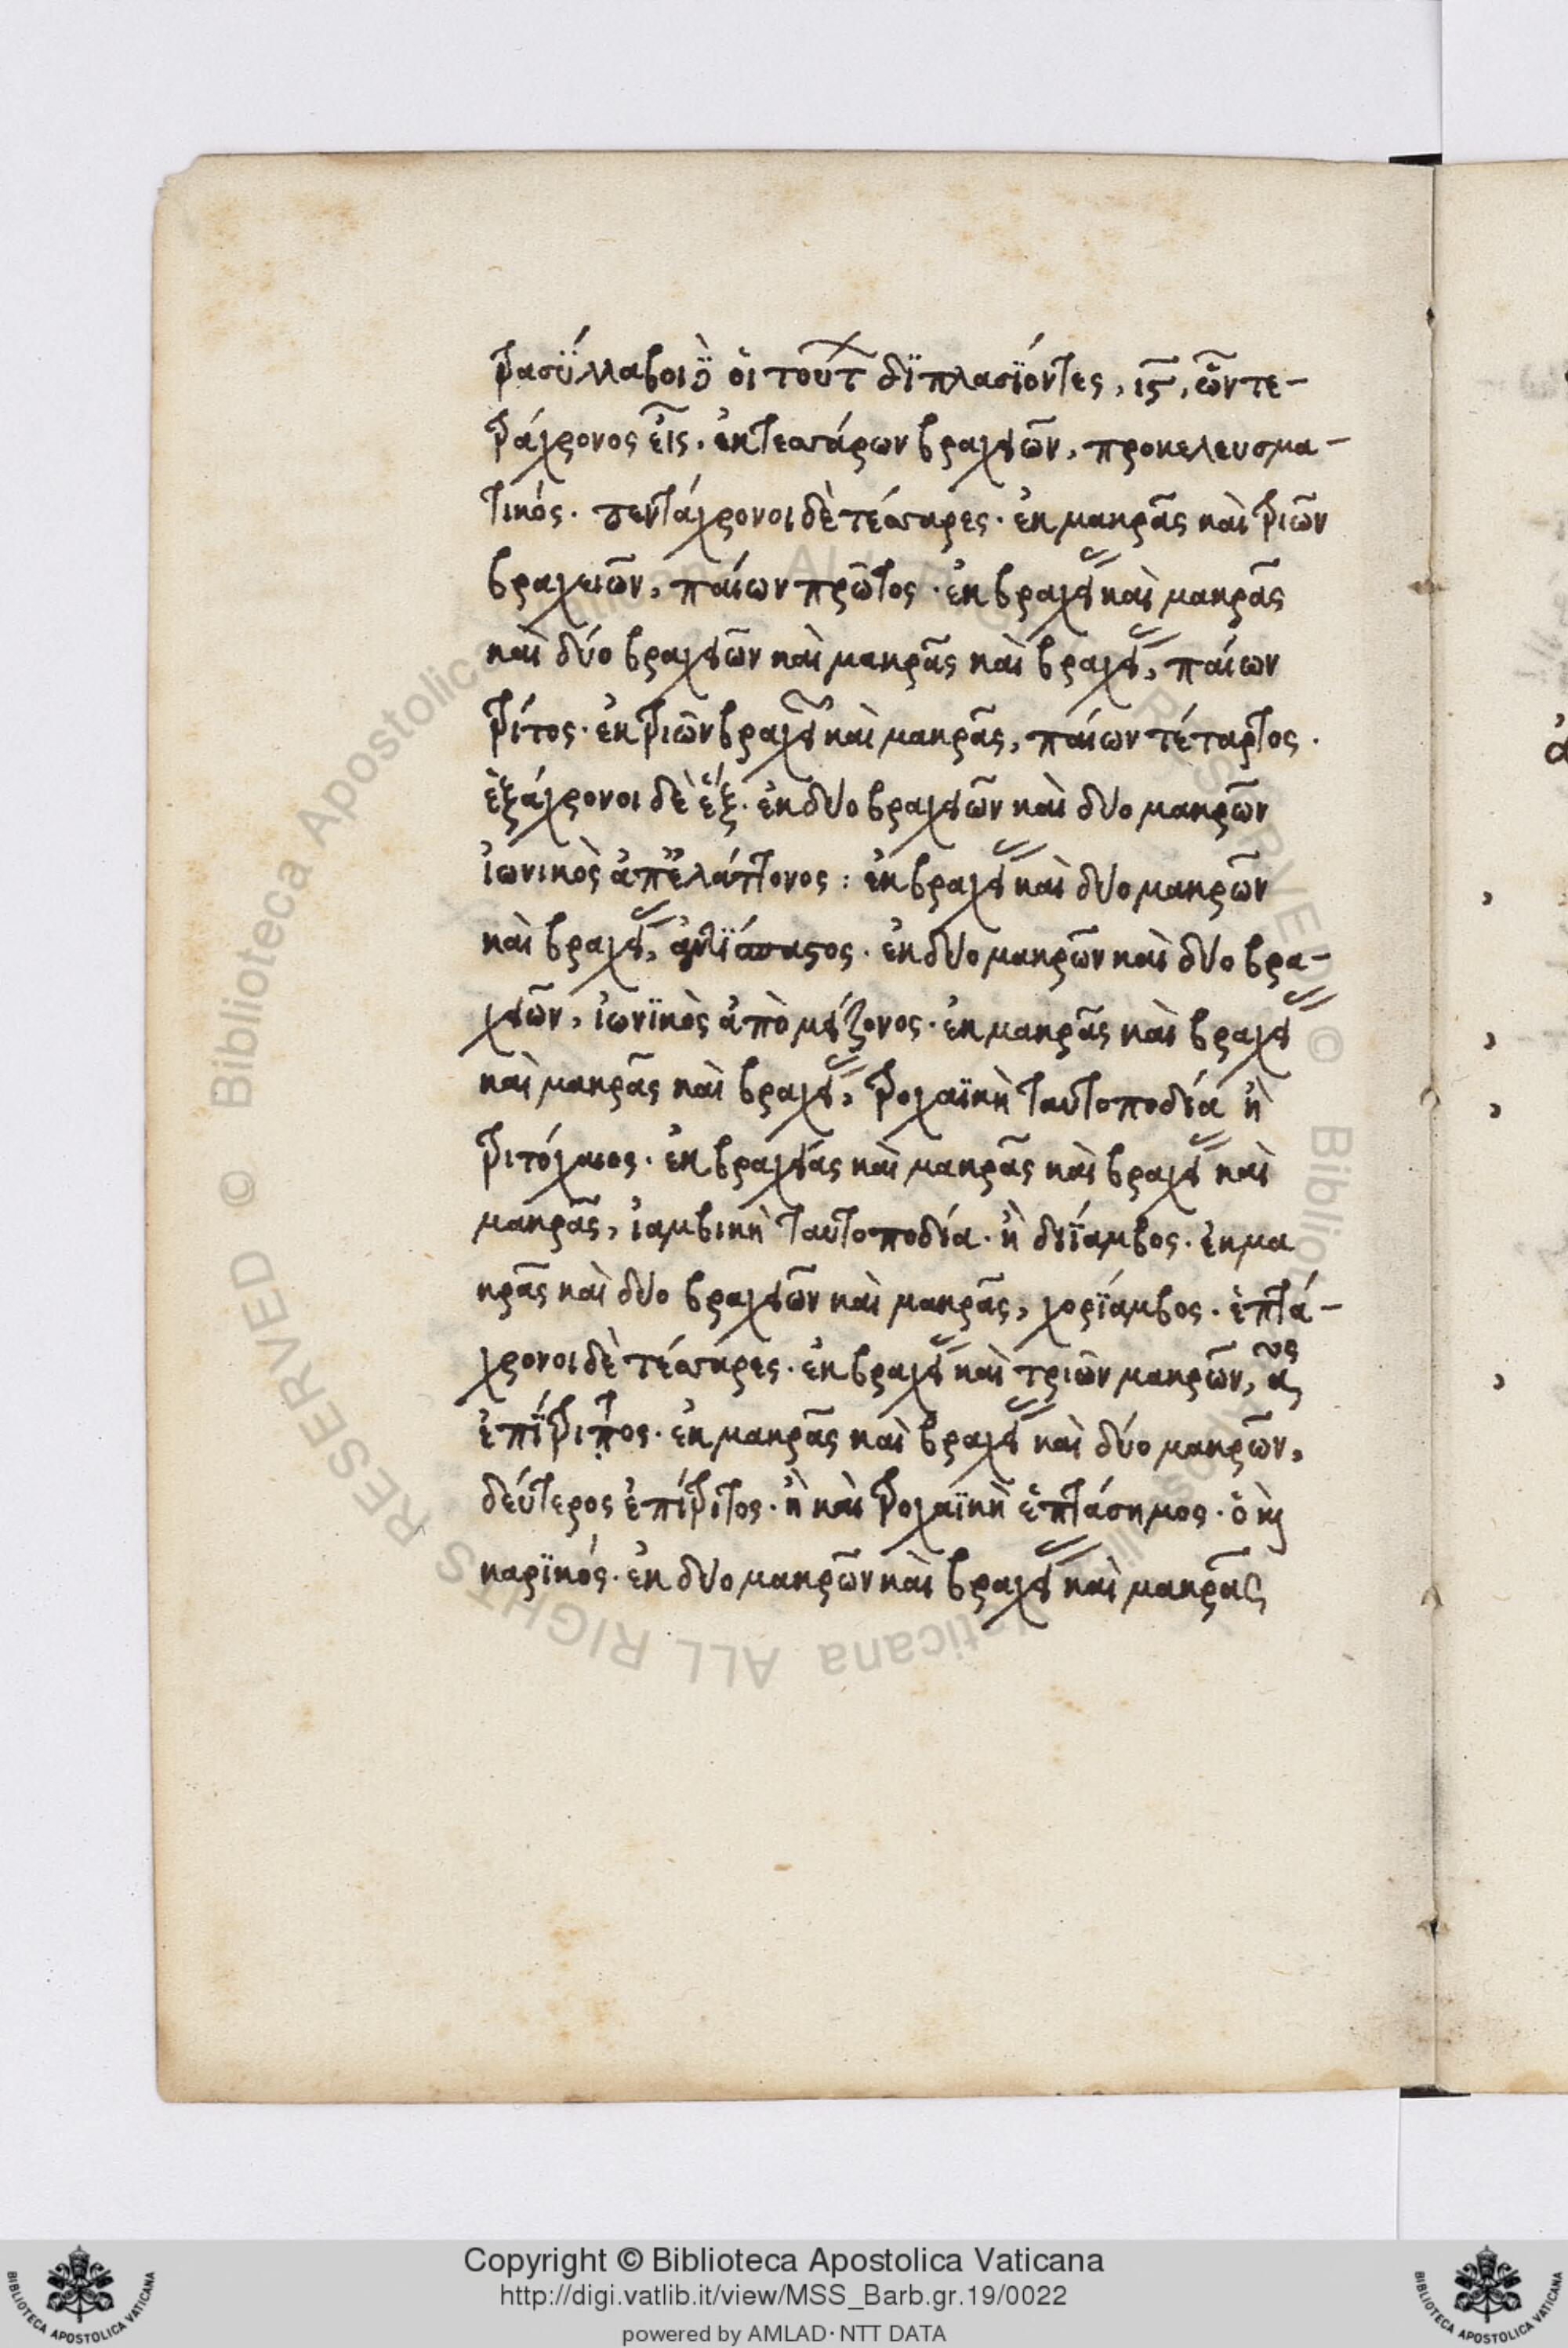 τρασύλλαβοι δὲ οἱ τούτ διπλασϊόντες, ις, ὧν τε-
τράχρονος εἷς· ἐκ τεσσάρων βραχειῶν, προκελευσμα-
τικός· πεντάχρονοι δὲ τέσσαρες· ἐκ μακρᾶς καὶ τριῶν
βραχειῶν, παίων πρῶτος· ἐκ βραχείας καὶ μακρᾶς
καὶ δύο βραχειῶν καὶ μακρᾶς καὶ βραχείας, παίων
τρίτος· ἐκ τριῶν βραχειῶν καὶ μακρᾶς, παίων τέταρτος·
ἑξάχρονοι δὲ ἕξ· ἐκ δυο βραχειῶν καὶ δυο μακρῶν
ἰωνικὸς ἀπ' ἐλάττονος: ἐκ βραχείας καὶ δυο μακρῶν
καὶ βραχείας, ἀντίσπαστος· ἐκ δυο μακρῶν καὶ δυο βρα-
χειῶν, ἰωνϊκὸς ἀπὸ μείζονος· ἐκ μακρᾶς καὶ βραχείας
καὶ μακρᾶς καὶ βραχείας, τροχαϊκὴ ταυτοποδία ἢ
τριτόχαιος· ἐκ βραχείας καὶ μακρᾶς καὶ βραχείας καὶ
μακρᾶς, ἰαμβικὴ ταυτοποδία· ἢ διΐαμβος· ἐκ μα
κρᾶς καὶ δυο βραχειῶν καὶ μακρᾶς, χορΐαμβος· ἑπτά-
χρονοι δὲ τέσσαρες· ἐκ βραχείας καὶ τριῶν μακρῶν, αος
ἐπίτριτος· ἐκ μακρᾶς καὶ βραχείας καὶ δύο μακρῶν,
δεύτερος ἐπίτριτος· ἢ καὶ τροχαϊκὴ ἑπτάσημος· ὁ καὶ
καρϊκός· ἐκ δυο μακρῶν καὶ βραχείας καὶ μακρᾶς
Copyright © Biblioteca Apostolica Vaticana
http://digi.vatlib.it/view/MSS_Barb.gr.19/0022
powered by AMLAD · NTT DATA